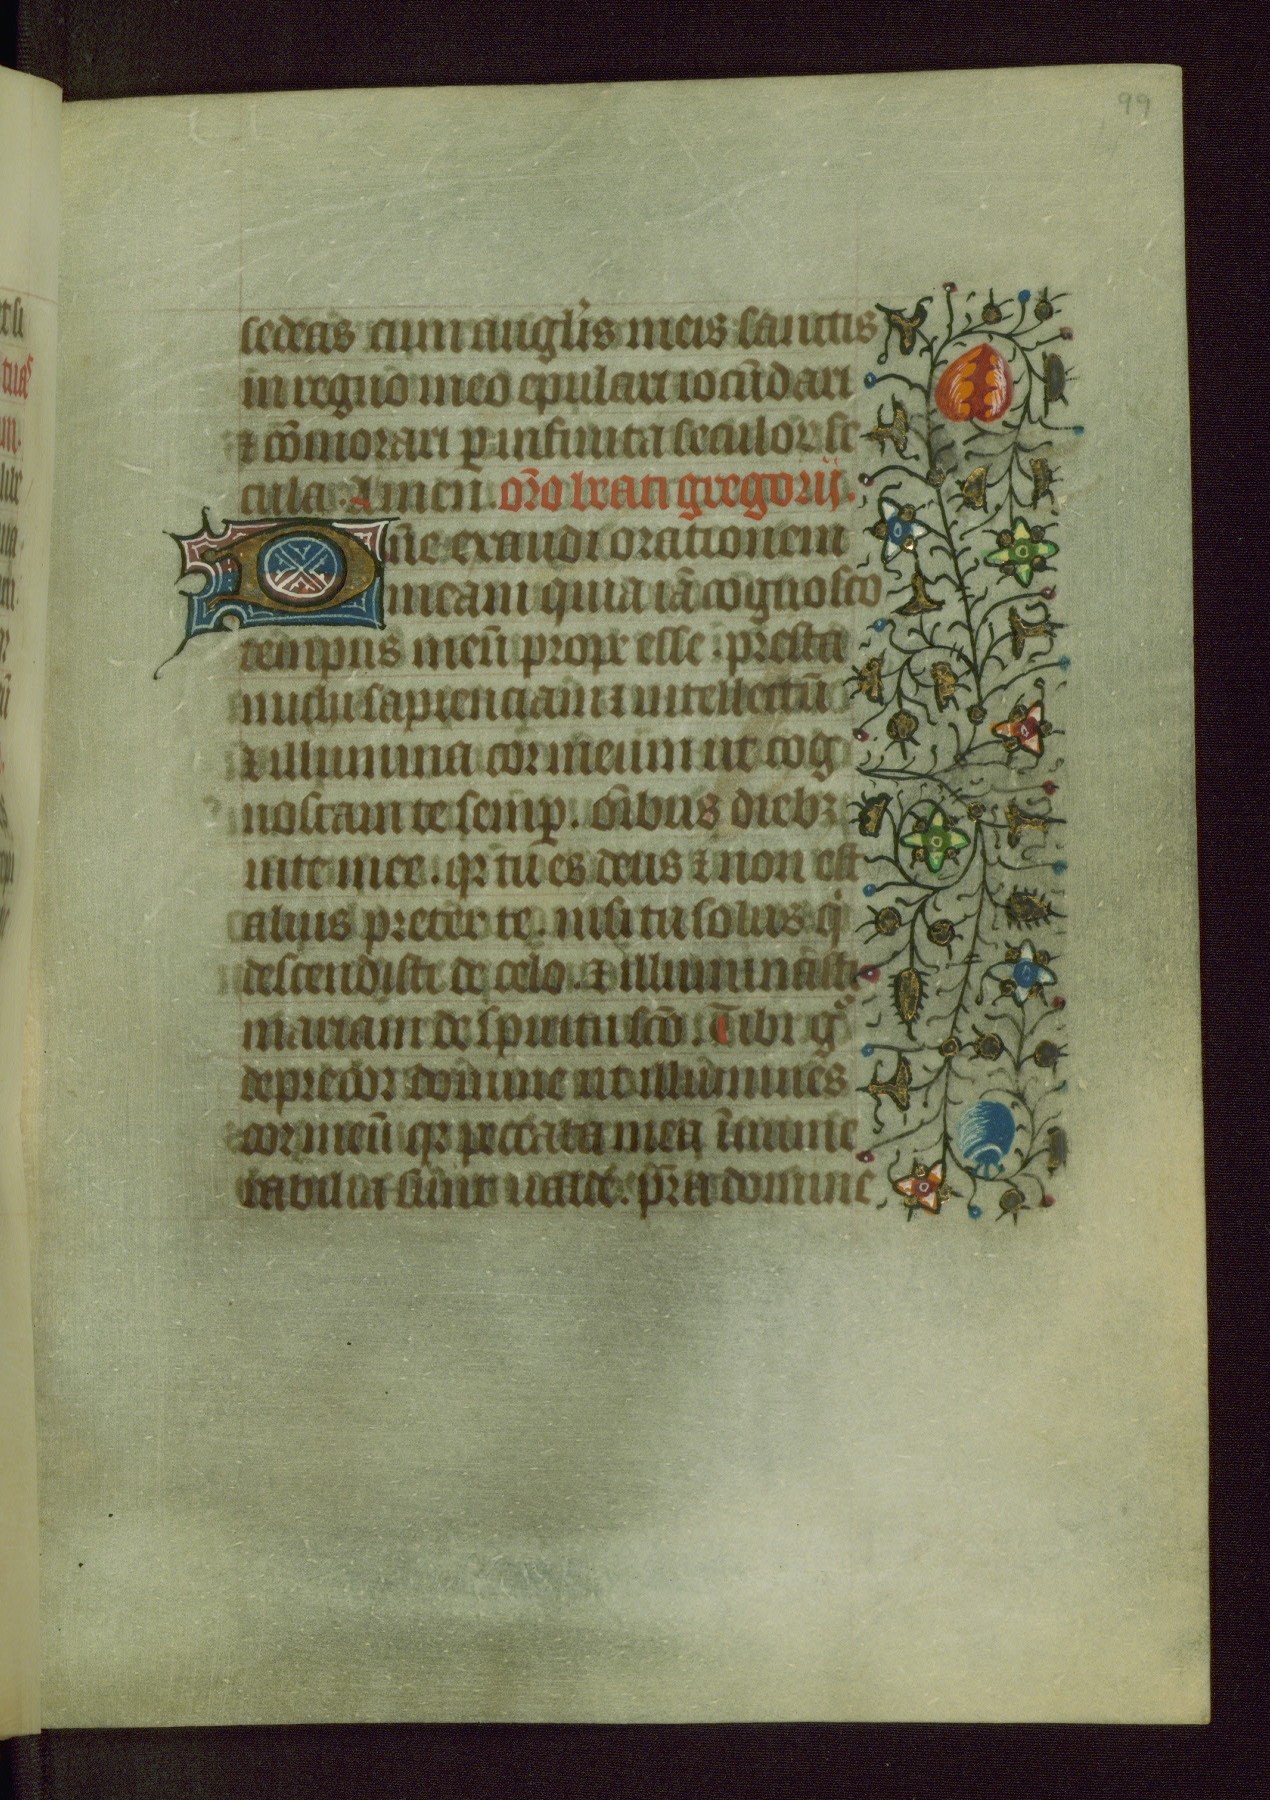 99
sedetis cum angl'is meis sanctis
in regno meo epulari iocūdari
⁊ cōmorari ꝑ infinita seculor se
cula. Amen. Or̄o beati gregorij.
Dn̄e exaudi orationem
meam quia iā cognosco
tempus meū prope esse. presta
michi sapienciam ⁊ intellectū
⁊ illumina cor meum ut cog
noscam te semꝑ. om̄ibus diebꝫ
vite mee. qr tu es deus ⁊ non est
alius preter te. nisi tu solus qⁱ
descendisti de celo. ⁊ illuminasti
mariam de spiritu sc̄o. Tibi gͦ
deprecor domine ut illumines
cor meū qr peccata mea īnume
rabilia sunt ualde. pr̄a domine